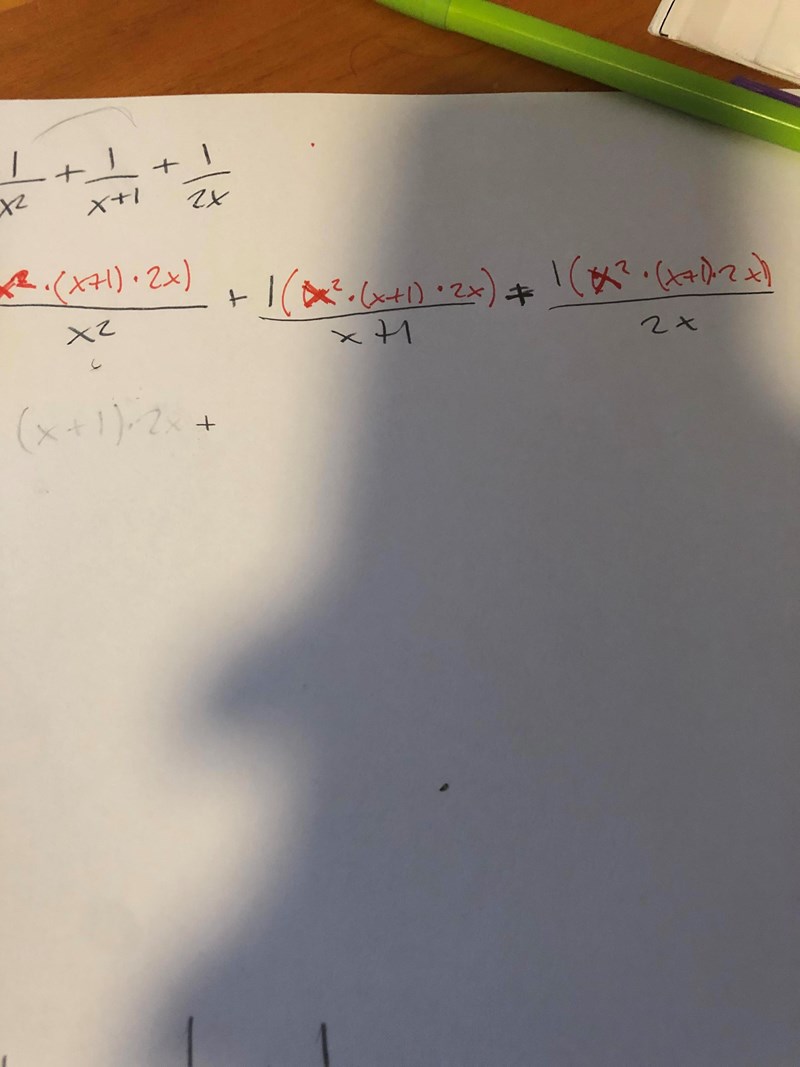 1/x2 + 1/x+1 + 1/2x
x²·(x+1)·2x)/x2 + 1(x²·(x+1)·2x)/x+1 + 1(x²·(x+1)·2x))/2x
(x+1)·2x +